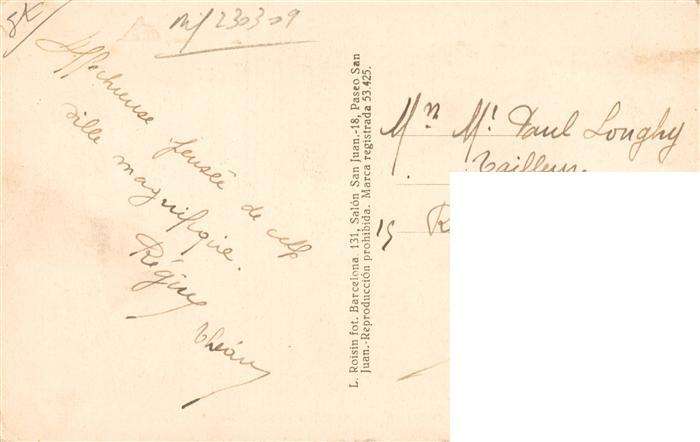 8€
Affectueuse pensée de cette
ville magnifique.
Régine
L. Roisin fot. Barcelona. 131, Salón San Juan.-18, Paseo San
Juan.-Reproducción prohibida. Marca registrada 53.425.
Mr Paul Longhy
Tailleur
15 R